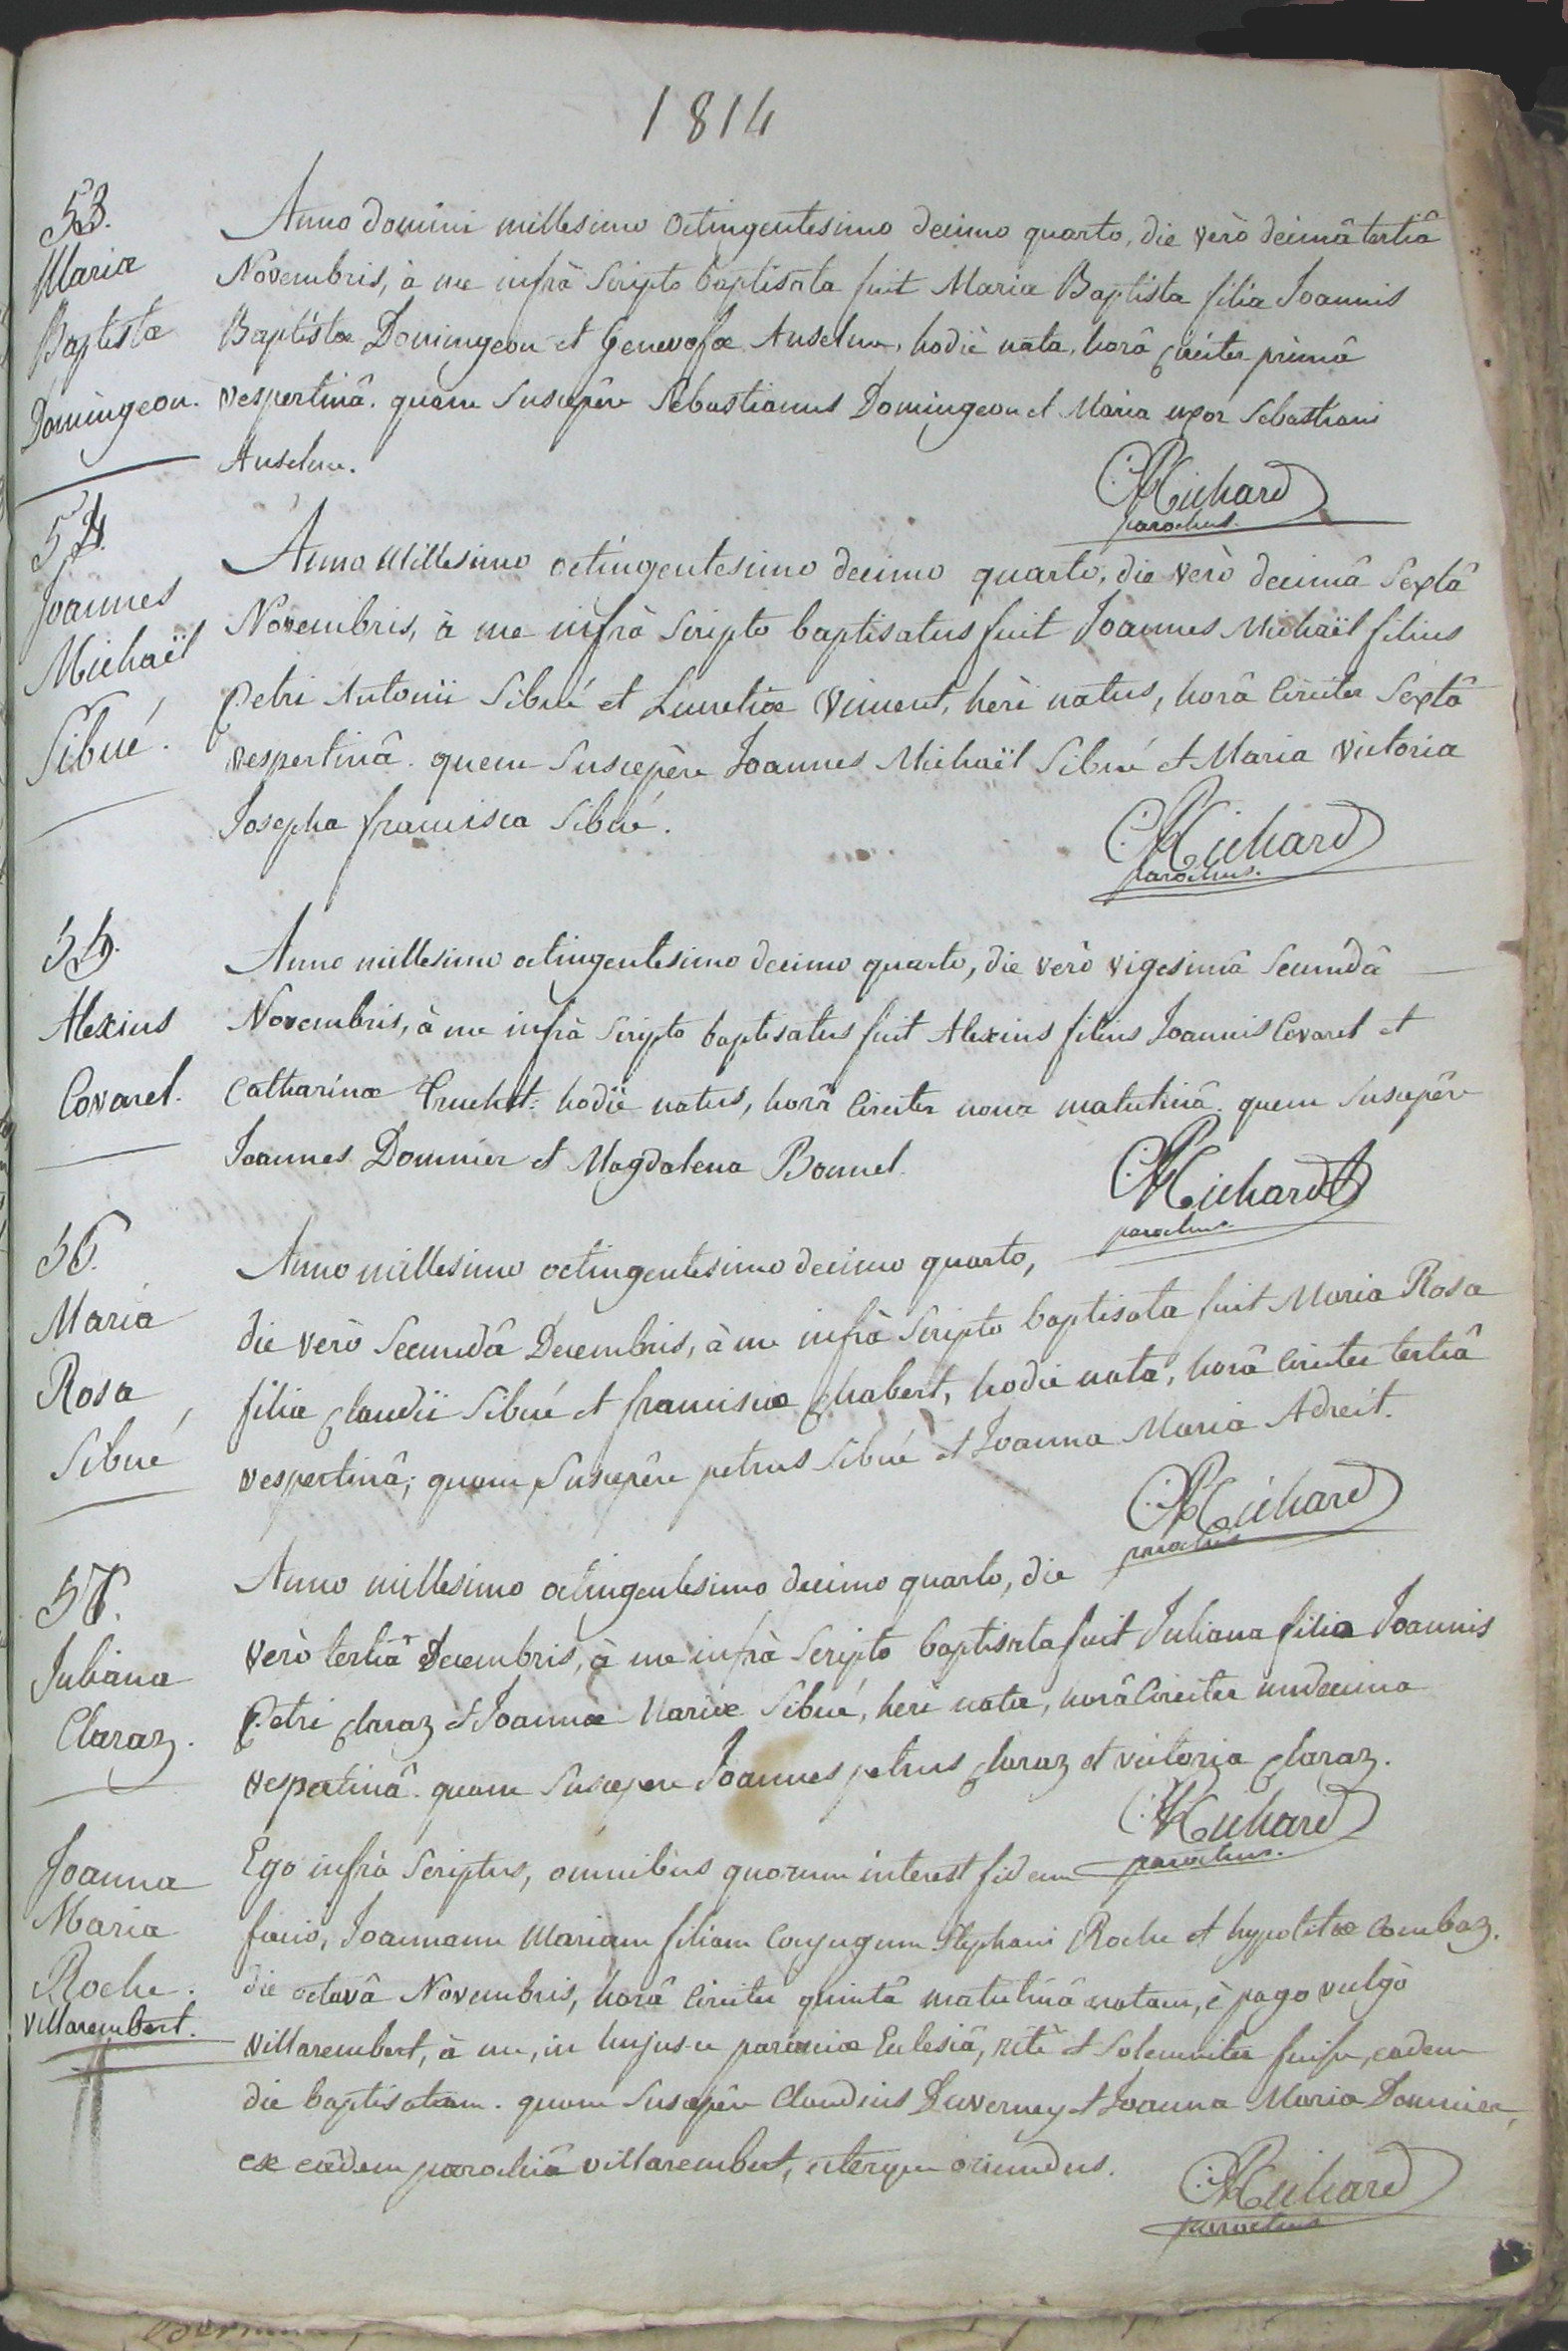 1814
53.
Maria
Baptista
Domingeon.
Anno domini millesimo octingentesimo decimo quarto, die verò decimâ tertiâ
Novembris, à me infrà Scripto baptisata fuit Maria Baptista filia Joannis
Baptistæ Domingeon et Genevofæ Anselme, hodiè nata, horâ circiter primâ
vespertinâ. quam Suscepêre Sebastianus Domingeon et Maria uxor Sebastiani
Anselme.
Richard
parochus.
54.
Joannes
Michaël
Sibué.
Anno Millesimo octingentesimo decimo quarto, die verò decimâ Sextâ
Novembris, à me infrà Scripto baptisatus fuit Joannes Michaël filius
Petri Antonii Sibué et Lucretiæ Vincent, herì natus, horâ Circiter Sextâ
vespertinâ. quem Suscepêre Joannes Michaël Sibué et Maria Victoria
Josepha francisca Sibué.
Richard
parochus.
55.
Alexius
Covarel.
Anno millesimo octingentesimo decimo quarto, die verò vigesimâ Secundâ
Novembris, à me infrà Scripto baptisatus fuit Alexius filius Joannis Covarel et
Catharinæ Truchet: hodiè natus, horâ Circiter nona matutinâ. quem Suscepêre
Joannes Dominier et Magdalena Bonnel.
Richard
parochus.
56.
Maria
Rosa
Sibué
Anno millesimo octingentesimo decimo quarto,
die verò Secundâ Decembris, à me infrà Scripto baptisata fuit Maria Rosa
filia Claudii Sibué et franciscæ Chabert, hodie nata, horâ Circiter tertiâ
vespertinâ; quam Suscepêre petrus Sibué et Joanna Maria Adreit.
Richard
parochus
57.
Juliana
Claraz.
Anno millesimo octingentesimo decimo quarto, die
verò tertiâ Decembris, à me infrà Scripto baptisata fuit Juliana filia Joannis
Petri Claraz et Joannæ Mariæ Sibué, heri nata, horâ Circiter undecima
vespertinâ. quam Suscepere Joannes petrus Claraz et victoria Claraz.
Richard
parochus.
Joanna
Maria
Roche.
Villarembert.
Ego infrà Scriptus, omnibus quorum interest fidem
facio, Joannam Mariam filiam Conjugum Stephani Roche et hypolitæ Combaz.
die octavâ Novembris, horâ Circiter quintâ matutinâ natam, è pago vulgò
villarembert, à me, in hujusce parœciæ Eclesiâ, ritè et Solemniter fuisse, eadem
die baptisatam. quam Suscepêre Claudius Duverney et Joanna Maria Dominier,
ex eâdem parochiâ villarembert, uterque oriundus.
Richard
parochus